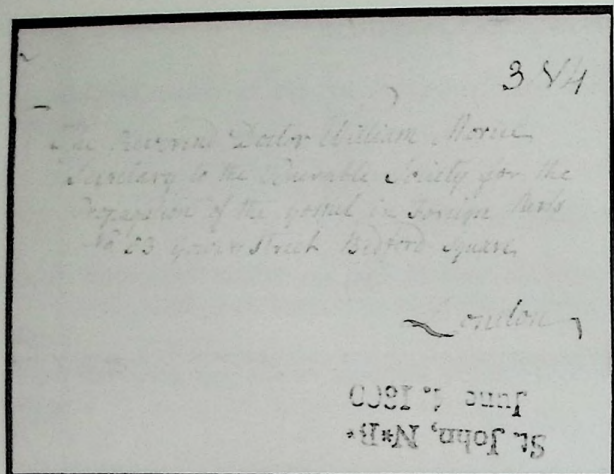 3 8/4
The Reverend Doctor William Morice
Secretary to the Venerable Society for the
Propagation of the gospel in Foreign Parts
No 23 gower street Bedford Square
London
St. John, N*B*
June 4. 1800